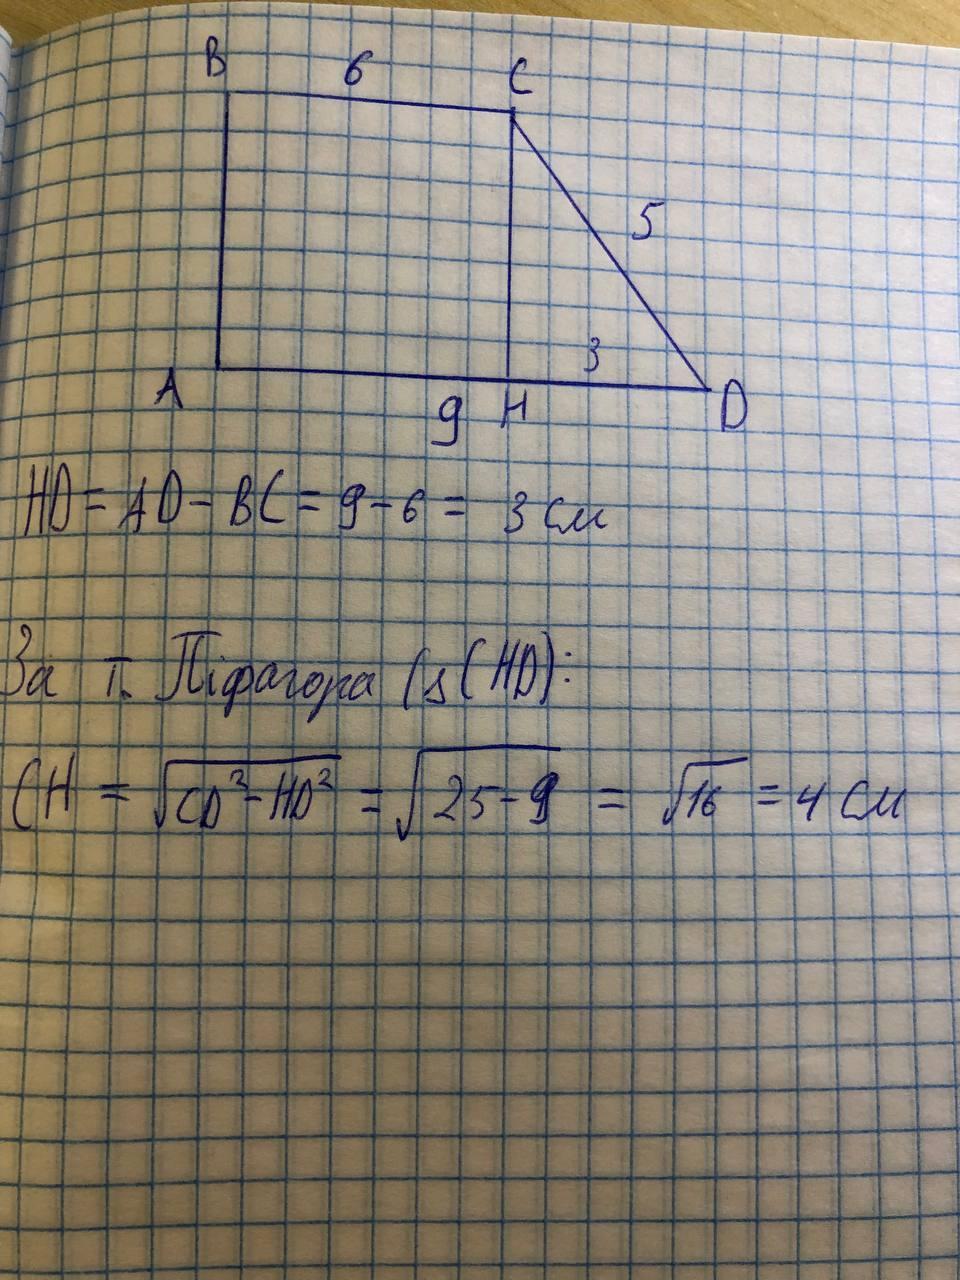 B 6 C
5
3
A 9 H D
HD = AD - BC = 9 - 6 = 3 см
За т. Піфагора (Δ CHD):
CH = √CD² - HD² = √25 - 9 = √16 = 4 см